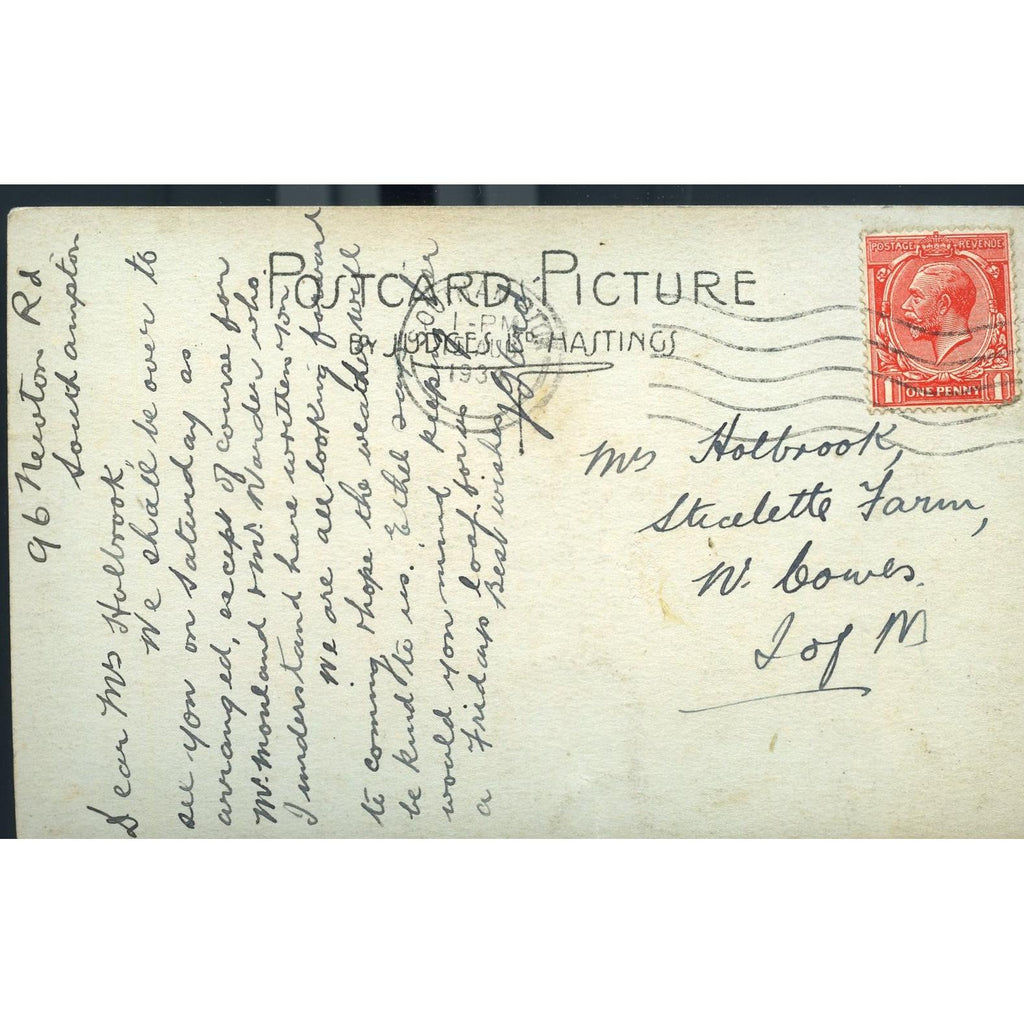 POSTCARD PICTURE
BY JUDGES LTD HASTINGS
POSTAGE REVENUE
1 ONE PENNY 1
1-PM
193
96 Newton Rd
Southampton
Dear Mrs Holbrook,
We shall be over to
see you on Saturday as
arranged, except of course for
Mr. Mouland & Mr. Warder who
I understand have written you.
We are all looking forward
to coming & hope the weather will
be kind to us. Ethel says
would you mind keep
a Fridays loaf for us
Best wishes
Mrs Holbrook,
Steelette Farm,
W. Cowes.
I of W